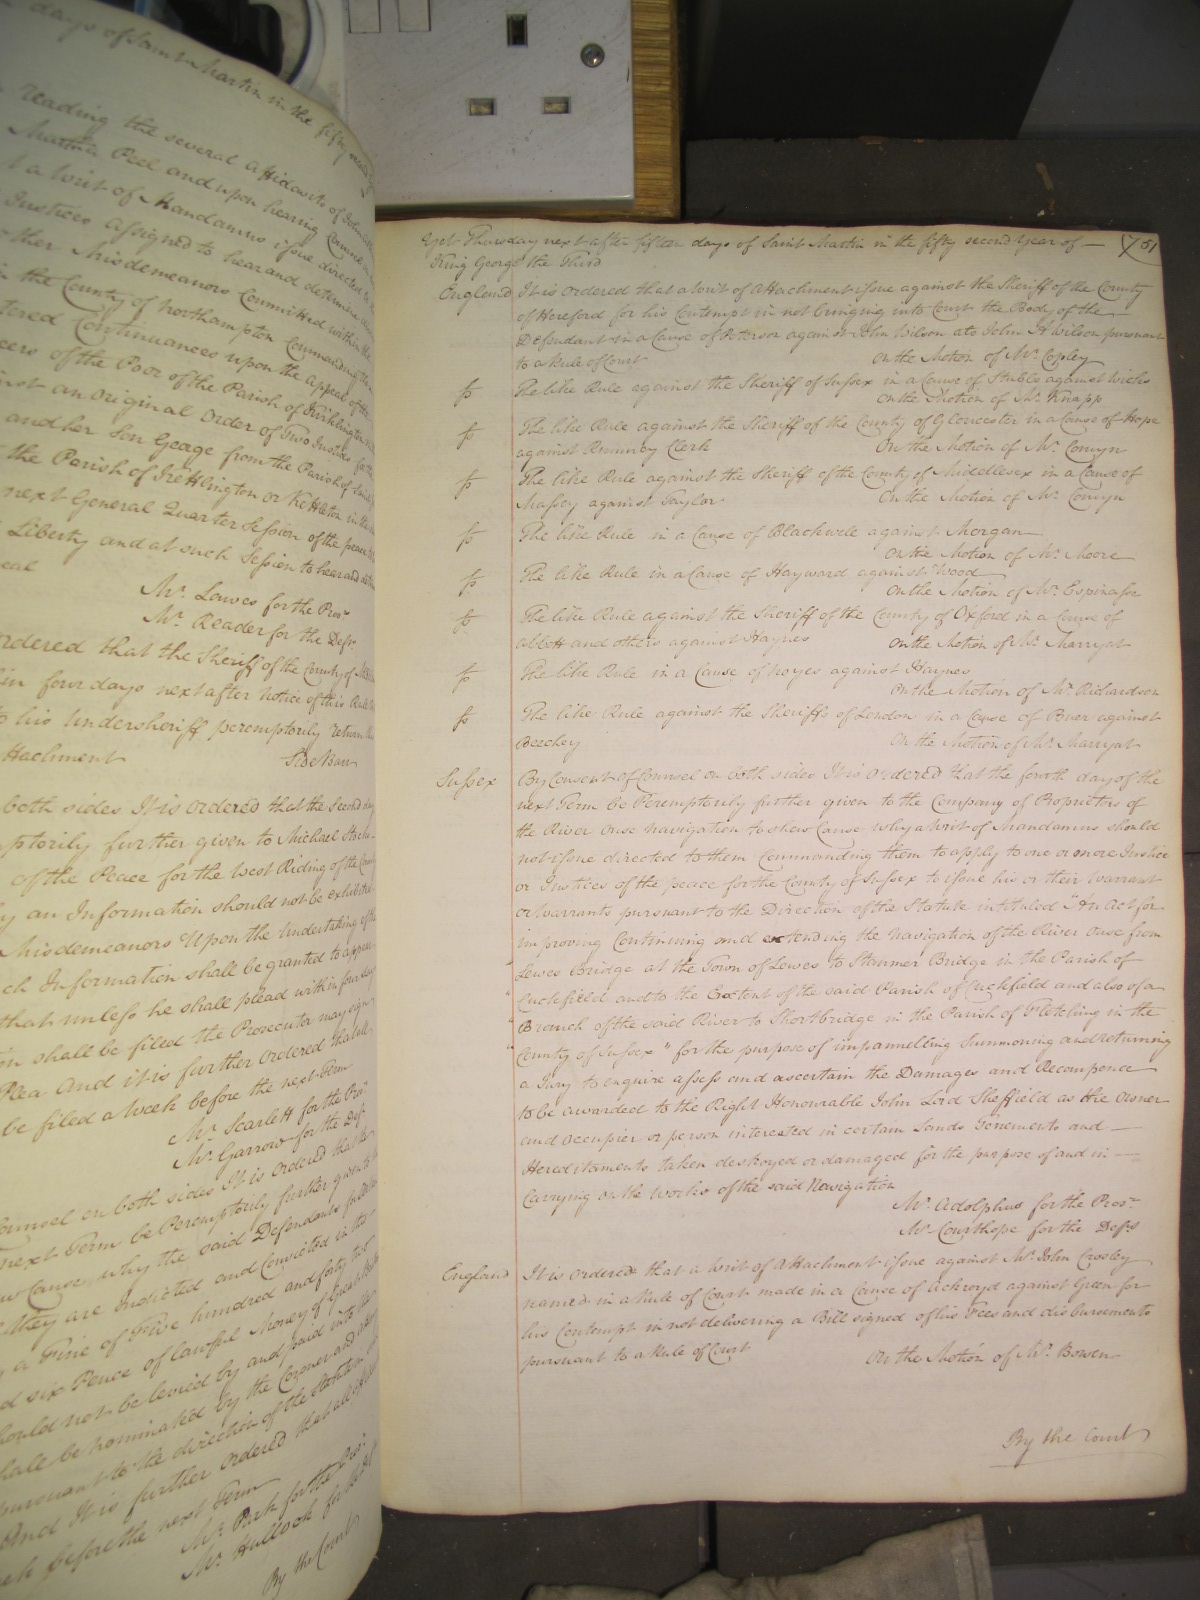 days of Saint Martin in the fifty
reading the several affidavits of John
Martha Peel and upon hearing Counsel
a Writ of Mandamus issue directed to
Justices assigned to hear and determine
other Misdemeanors Committed within the
in the County of Northampton Commanding
Continuances upon the Appeal of the
of the Poor of the Parish of
an original Order of Two Justices
and her Son George from the Parish of
the Parish of or in the
next General Quarter Session of the peace
Liberty and at such Session to hear and
Mr. Lawes for the Prosr.
Mr. Reader for the Deft.
ordered that the Sheriff of the County of
in four days next after notice of this Rule
his Undersheriff peremptorily return
Attachment Side Bar
both sides It is ordered that the second day
further given to Michael
of the Peace for the West Riding of the County
an Information should not be exhibited
Misdemeanors Upon the Undertaking of the
Information shall be granted to appear
that unless he shall plead within four days
shall be filed the Prosecutor may sign
Plea And it is further ordered that all
be filed a Week before the next Term
Mr. Scarlett for the Pros
Mr. Garrow for the Deft.
Counsel on both sides It is ordered that the
next Term be Peremptorily further given to
Cause why the said Defendants
they are Indicted and Convicted in the
a Fine of Five hundred and forty
six Pence of lawful Money of Great
should not be levied by and paid into the
shall be nominated by the Coroner and
pursuant to the direction of the Statute
And It is further ordered that all
before the next Term
Mr. Park for the Pros.
Mr. Hullock for the
By the Court
Yet Thursday next after fifteen days of Saint Martin in the fifty second Year of — 761
King George the Third
England It is ordered that a Writ of Attachment issue against the Sheriff of the County
of Hereford for his Contempt in not bringing into Court the Body of the —
Defendant in a Cause of Peterson against John Wilson ats John A Wilson pursuant
to a Rule of Court On the Motion of Mr. Copley
fs The like Rule against the Sheriff of Sussex in a Cause of Stubbs against Wicks
On the Motion of Mr. Knapp
fs The like Rule against the Sheriff of the County of Gloucester in a Cause of Hope
against Clerk On the Motion of Mr. Comyn
fs The like Rule against the Sheriff of the County of Middlesex in a Cause of
Massey against Taylor On the Motion of Mr. Comyn
fs The like Rule in a Cause of Blackwell against Morgan
On the Motion of Mr. Moore
fs The like Rule in a Cause of Hayward against Wood
On the Motion of Mr. Espinasse
fs The like Rule against the Sheriff of the County of Oxford in a Cause of
Abbott and others against Haynes On the Motion of Mr. Marryat
fs The like Rule in a Cause of Noyes against Haynes
On the Motion of Mr. Richardson
fs The like Rule against the Sheriffs of London in a Cause of against
Beechey On the Motion of Mr. Marryat
Sussex By Consent of Counsel on both sides It is ordered that the fourth day of the
next Term be Peremptorily further given to the Company of Proprietors of
the River Ouse Navigation to shew Cause why a Writ of Mandamus should
not issue directed to them Commanding them to apply to one or more Justice
or Justices of the peace for the County of Sussex to issue his or their Warrant
or Warrants pursuant to the Direction of the Statute intituled "An Act for
improving Continuing and extending the Navigation of the River Ouse from
Lewes Bridge at the Town of Lewes to Hammer Bridge in the Parish of
" Cuckfield and to the Extent of the said Parish of Cuckfield and also of a
" Branch of the said River to Shortbridge in the Parish of Fletching in the
" County of Sussex" for the purpose of impannelling Summoning and returning
a Jury to enquire assess and ascertain the Damages and Recompence
to be awarded to the Right Honourable John Lord Sheffield as the owner
and occupier or person interested in certain Lands Tenements and —
Hereditaments taken destroyed or damaged for the purpose of and in —
Carrying on the Works of the said Navigation
Mr. Adolphus for the Prosr.
Mr. Courthope for the Defts
England It is ordered that a Writ of Attachment issue against Mr. John Crosley
named in a Rule of Court made in a Cause of Ackroyd against Green for
his Contempt in not delivering a Bill signed of his Fees and disbursements
pursuant to a Rule of Court On the Motion of Mr. Bowen
By the Court